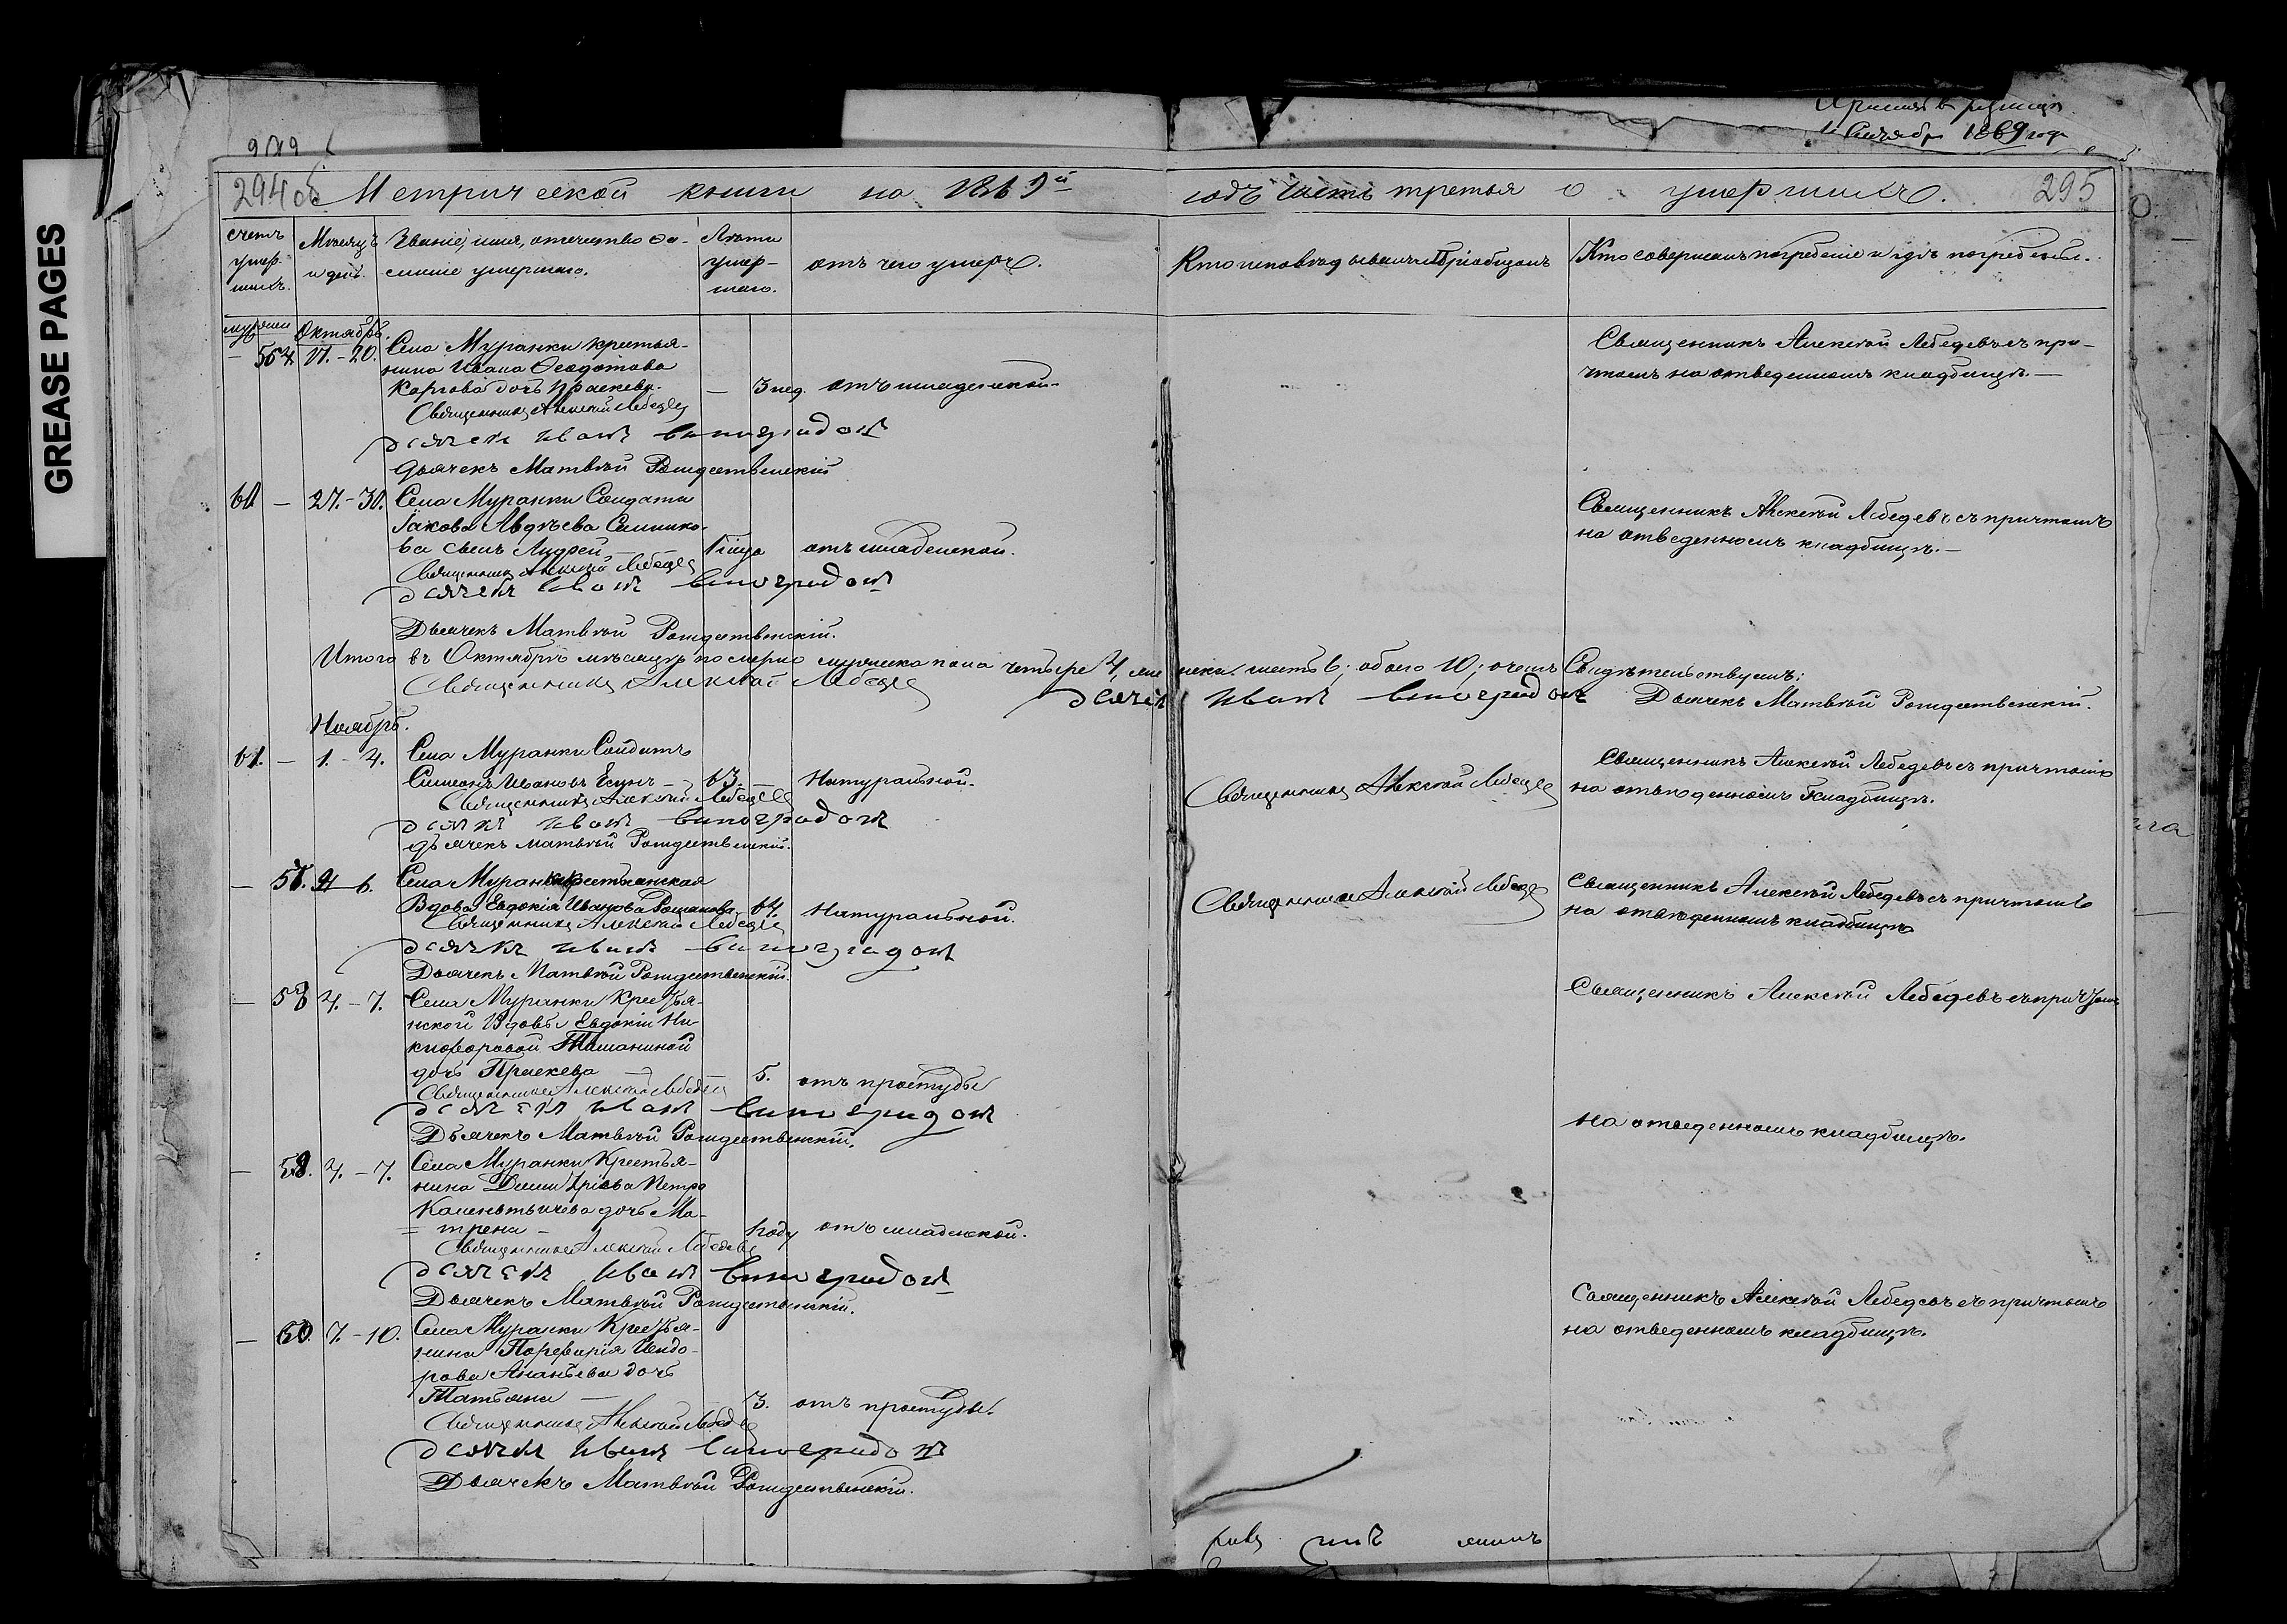 GREASE PAGES
1869 года
294 об
Метрической книги на 1869й
годъ часть третья о умершихъ.
295
счетъ умер-шихъ.
Мѣсяцъ и день.
Званіе, имя, отечество фа-
миліе умершаго.
Лѣта умер-шаго.
отъ чего умеръ.
Кто исповѣдывалъ и Пріобщалъ
Кто совершалъ погребеніе и гдѣ погребены.
Октябрь.
17.-20.
Села Муранки крестья-
нина Ивана Ѳеодотова
Карпова дочь Праскевія.
— 3 нед. отъ младенской
Священникъ Алексѣй Лебедевъ съ при-
чтомъ на отведенномъ кладбищѣ.—
Священникъ Алексѣй Лебедевъ
дьячекъ Иванъ Виноградовъ
дьячекъ Матвѣй Рождественскій
60 — 27.-30.
Села Муранки Солдата
Іакова Авдѣева
сынъ Андрей
1 года отъ младенской.
Священникъ Алексѣй Лебедевъ съ причтомъ
на отведенномъ кладбищѣ.—
Священникъ Алексѣй Лебедевъ
дьячекъ Иванъ Виноградовъ
Дьячекъ Матвѣй Рождественскій.
Итого въ Октябрѣ мѣсяцѣ померло мужеска пола четыре 4, женска шесть 6; обоего 10; о чемъ Свидѣтельствуемъ:
Священникъ Алексѣй Лебедевъ
дьячекъ Иванъ Виноградовъ
Дьячекъ Матвѣй Рождественскій.
Ноябрь.
61. — 1.-4.
Села Муранки Солдатъ
Симеонъ Ивановъ
63. — Натуральной.
Священникъ Алексѣй Лебедевъ
Священникъ Алексѣй Лебедевъ съ причтомъ
на отведенномъ Кладбищѣ.
Священникъ Алексѣй Лебедевъ
дьячекъ Иванъ Виноградовъ
дьячекъ Матвѣй Рождественскій.
— 6.
Села Муранки крестьянская
Вдова Евдокія Иванова Романова
64. Натуральной.
Священникъ Алексѣй Лебедевъ
Священникъ Алексѣй Лебедевъ съ причтомъ
на отведенномъ кладбищѣ
Священникъ Алексѣй Лебедевъ
дьячекъ Иванъ Виноградовъ
Дьячекъ Матвѣй Рождественскій.
— 58 4.-7.
Села Муранки Крестья-
нской Вдовы Евдокіи Ни-
кифоровой
дочь Праскева
5. отъ простуды
Священникъ Алексѣй Лебедевъ съ причтомъ
на отведенномъ кладбищѣ.
Священникъ Алексѣй Лебедевъ
дьячекъ Иванъ Виноградовъ
Дьячекъ Матвѣй Рождественскій.
— 4.-7.
Села Муранки Крестья-
нина Димитрія Петро
дочь Ма-
трена
году отъ младенской.
Священникъ Алексѣй Лебедевъ
дьячекъ Иванъ Виноградовъ
Дьячекъ Матвѣй Рождественскій.
— 60. 7.-10.
Села Муранки Крестья-
нина Порфирія Исидо-
рова Ананьева дочь
Татьяна —
3. отъ простуды.
Священникъ Алексѣй Лебедевъ съ причтомъ
на отведенномъ кладбищѣ.
Священникъ Алексѣй Лебедевъ
дьячекъ Иванъ Виноградовъ
Дьячекъ Матвѣй Рождественскій.